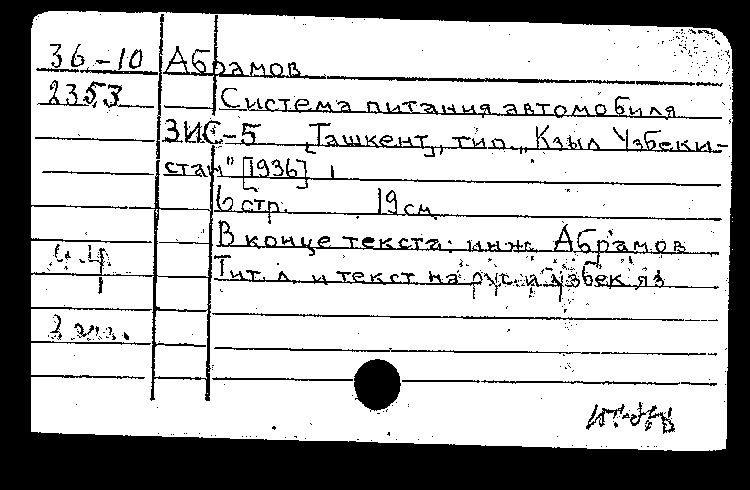 36-10 Абрамов
2353 Система питания автомобиля
ЗИС-5 [Ташкент], тип. „Кзыл Узбеки-
стан" [1936]
6 стр. 19 см
В конце текста: инж. Абрамов
Тит. л. и текст на рус. и узбек яз
2 экз.